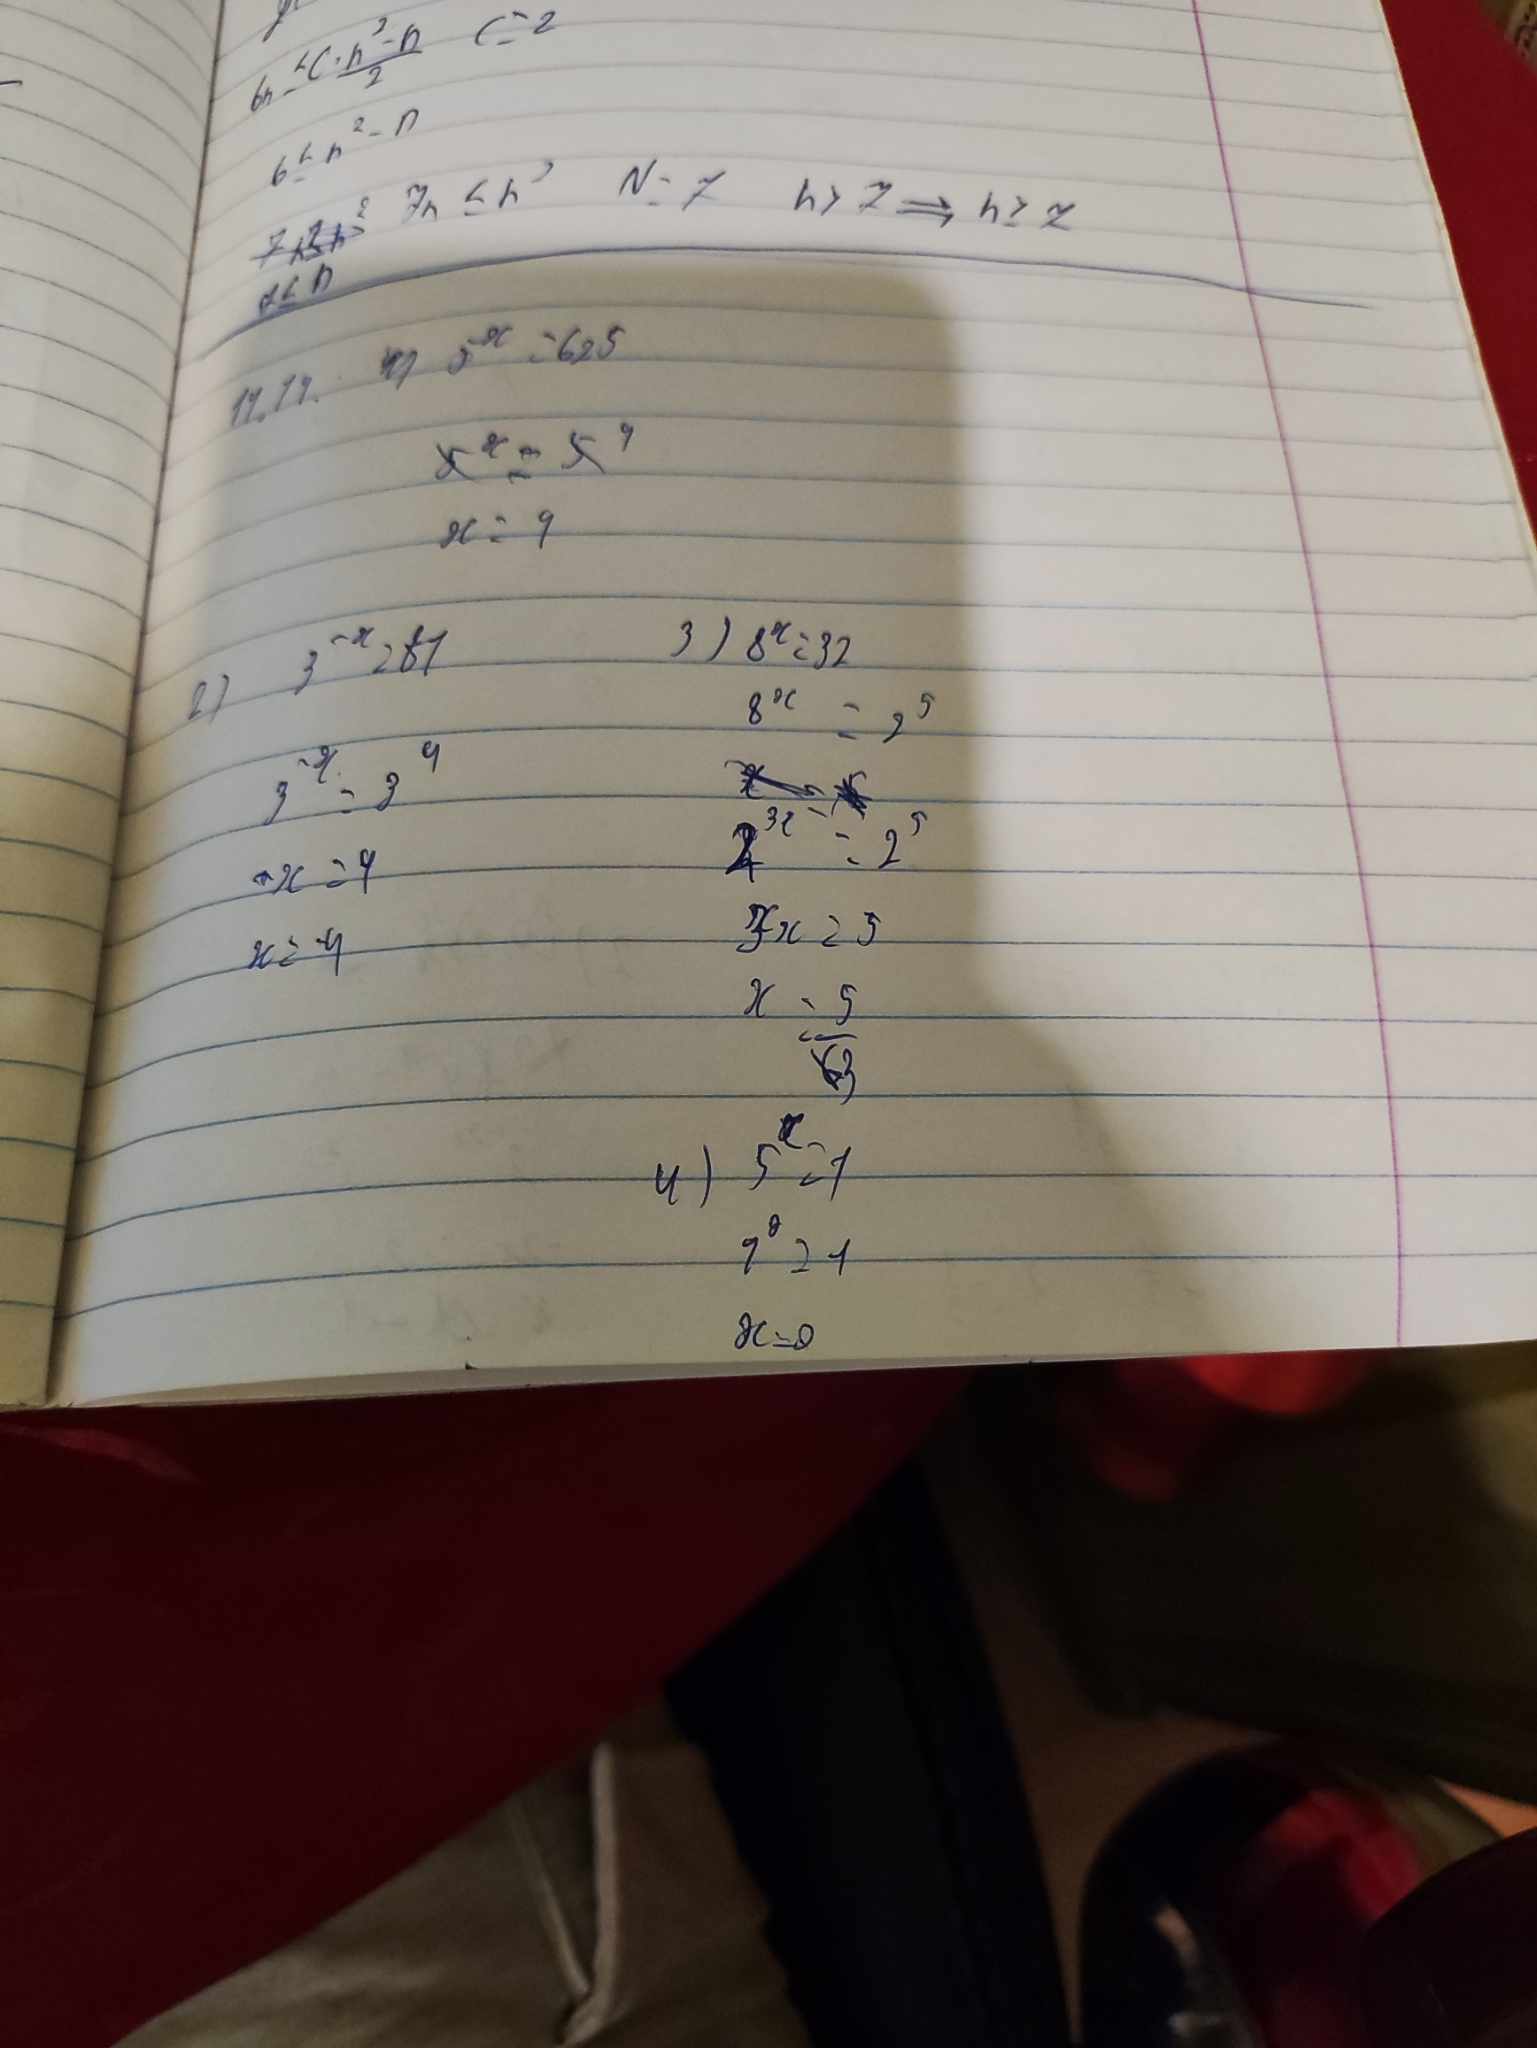 6n ≤ C · n² - n / 2 C = 2
6 ≤ n² - n
7n ≤ n² N = 7 n > 7 ⟹ n ≥ 7
7 ≤ n
14.14. 1) 5^x = 625
5^x = 5^4
x = 4
2) 3^-x = 81
3^-x = 3^4
-x = 4
x = -4
3) 8^x = 32
8^x = 2^5
2^3x = 2^5
3x = 5
x = 5/3
4) 5^x = 1
x = 0